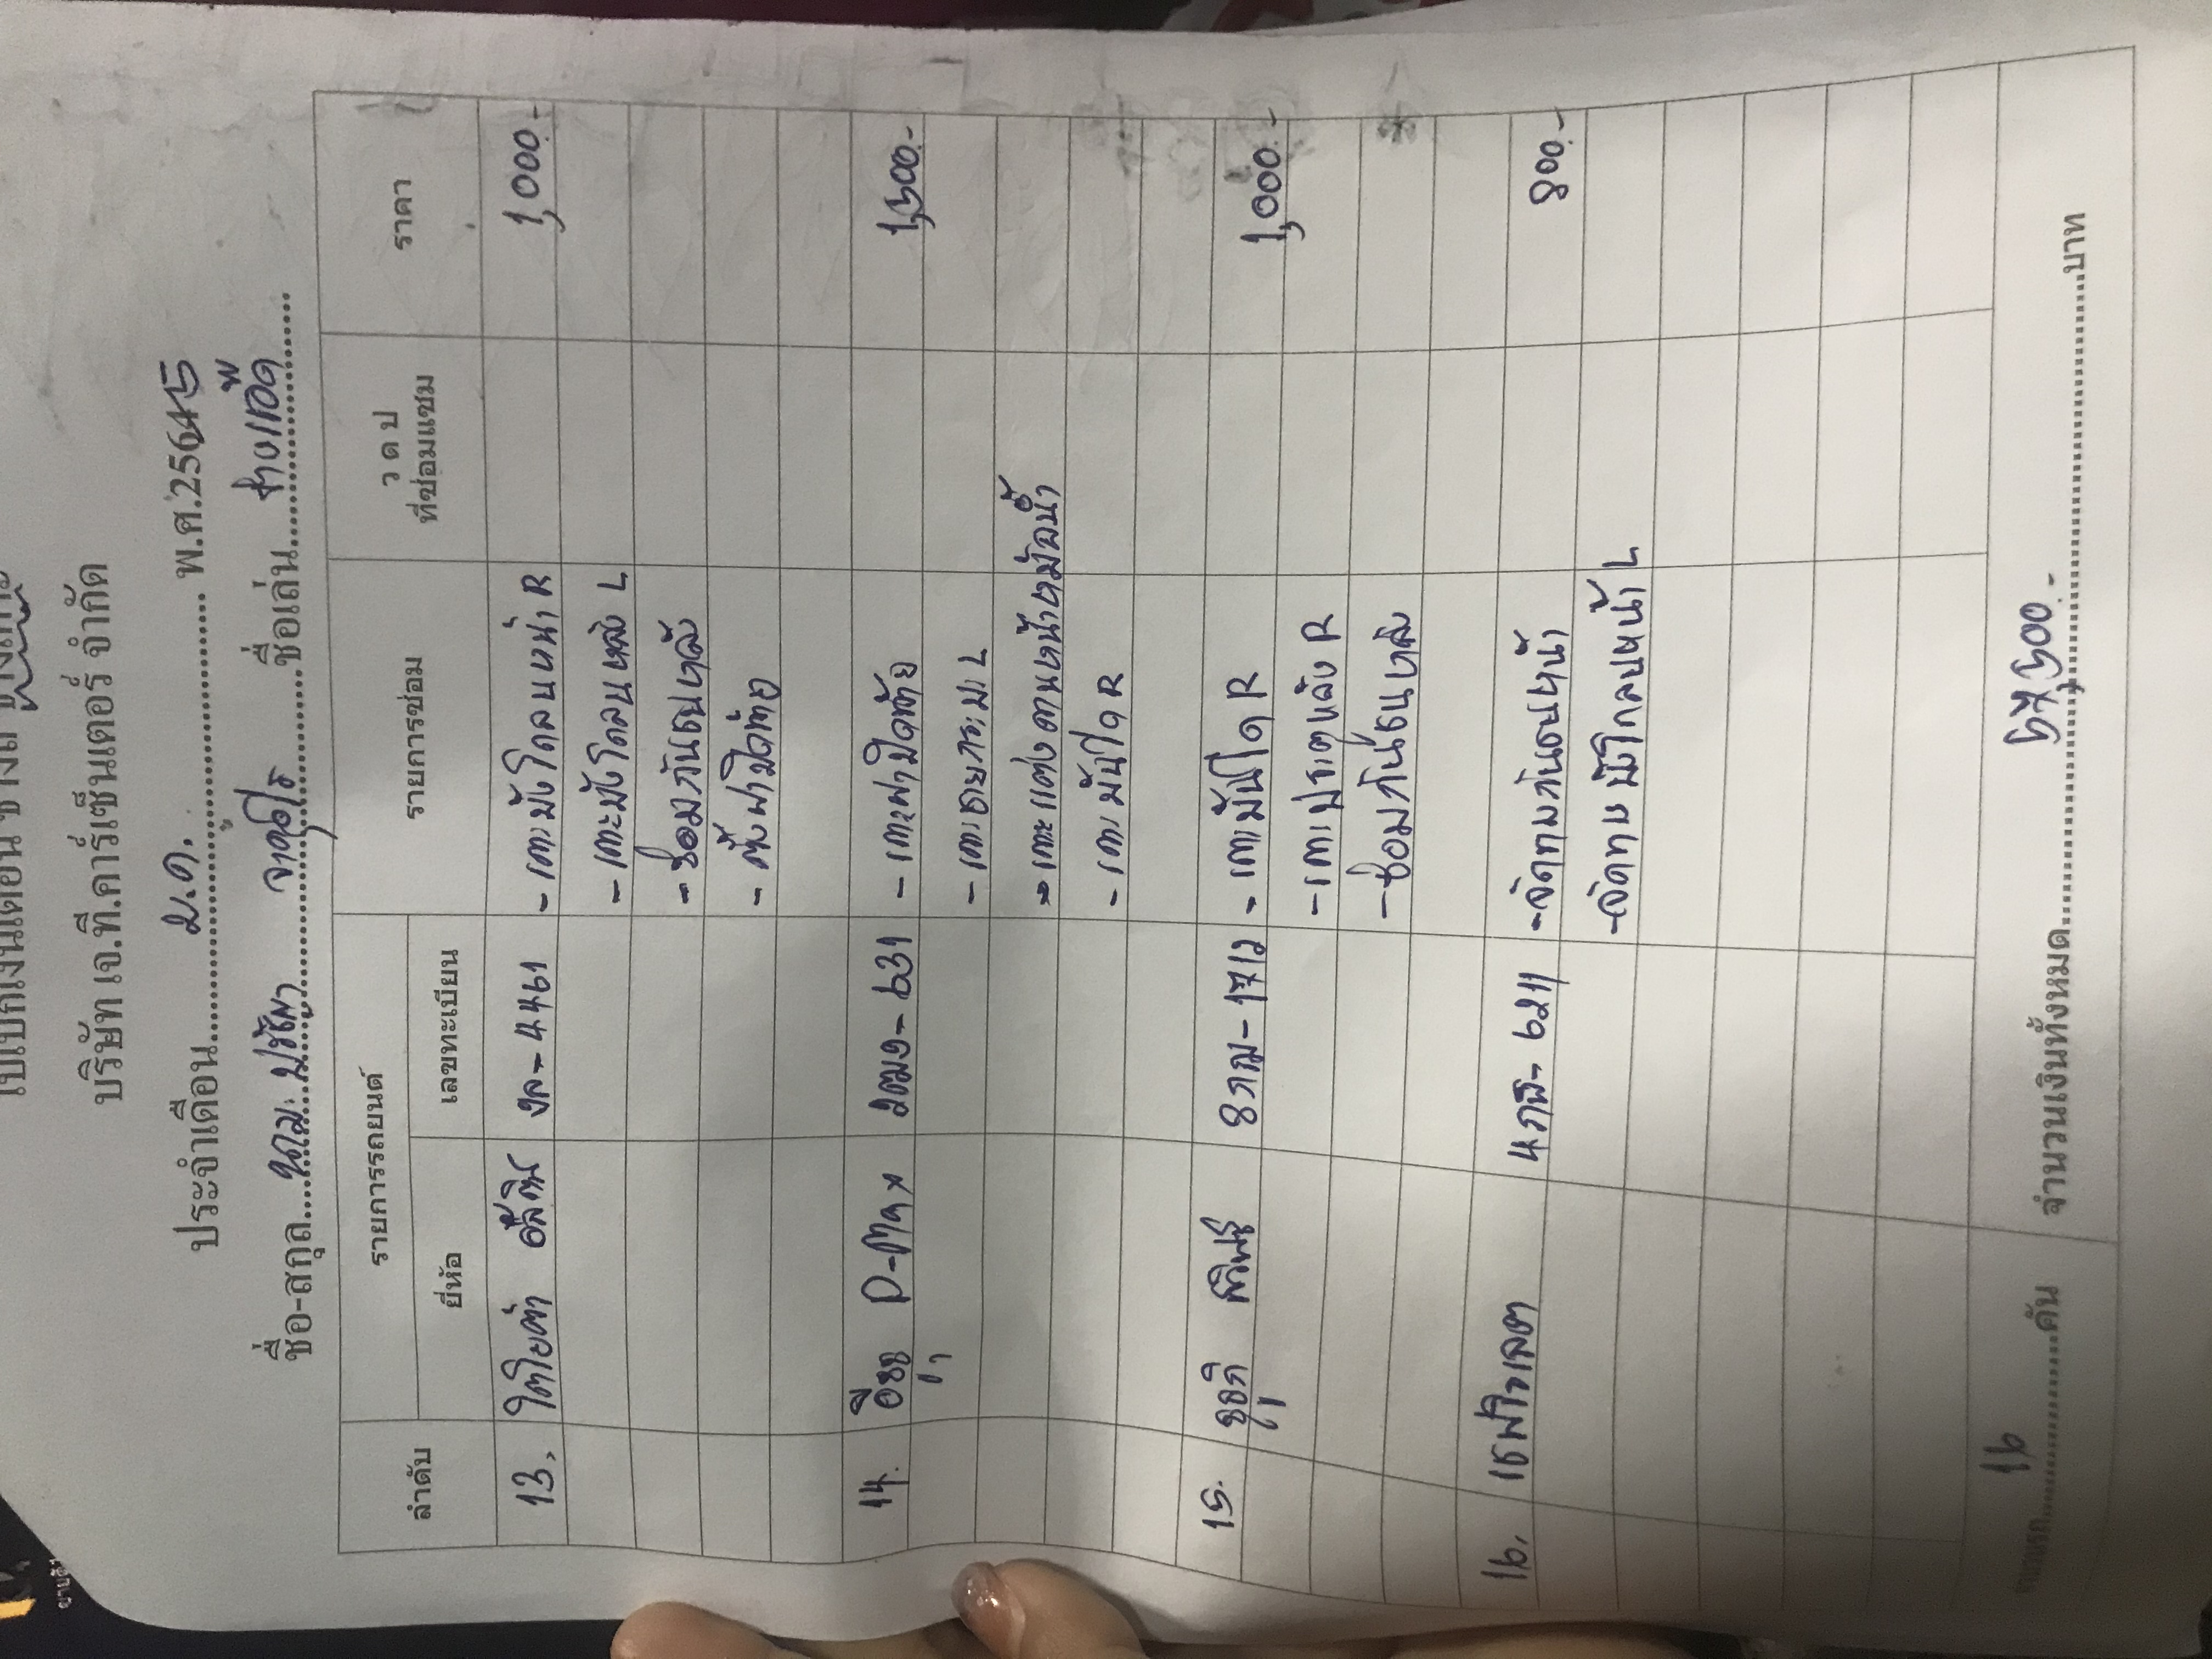 ใบเบิกเงินเดือน ช่าง
บริษัท เจ.ที.คาร์เซ็นเตอร์ จำกัด
ประจำเดือน ม.ค. พ.ศ.2565
ชื่อ-สกุล ชื่อเล่น ช่างแอ๊ด
ลำดับ รายการรถยนต์ รายการซ่อม ว ด ป ที่ซ่อมแซม ราคา
ยี่ห้อ เลขทะเบียน
13. โตโยต้า อัลติส งล-4461 -เคาะบังโคลนหน้า R 1,000.-
-เคาะบังโคลนหลัง L
-ซ่อมกันชนหลัง
-ตั้งฝาปิดท้าย
14. อีซูซุ D-Max 2ฒฉ-6391 -เคาะฝาปิดท้าย 1,500.-
-เคาะชายกระบะ L
-เคาะแต่งคานหน้าหม้อน้ำ
-เคาะบันได R
15. ซูซูกิ สวิฟซ์ 8กฌ-1712 -เคาะบันได R 1,000.-
-เคาะประตูหลัง R
-ซ่อมกันชนหลัง
16. เชฟโรเลต 4กฬ-6211 -จัดทรงกันชนหน้า 800.-
-จัดทรงบังโคลนหน้า L
16 คัน จำนวนเงินทั้งหมด บาท